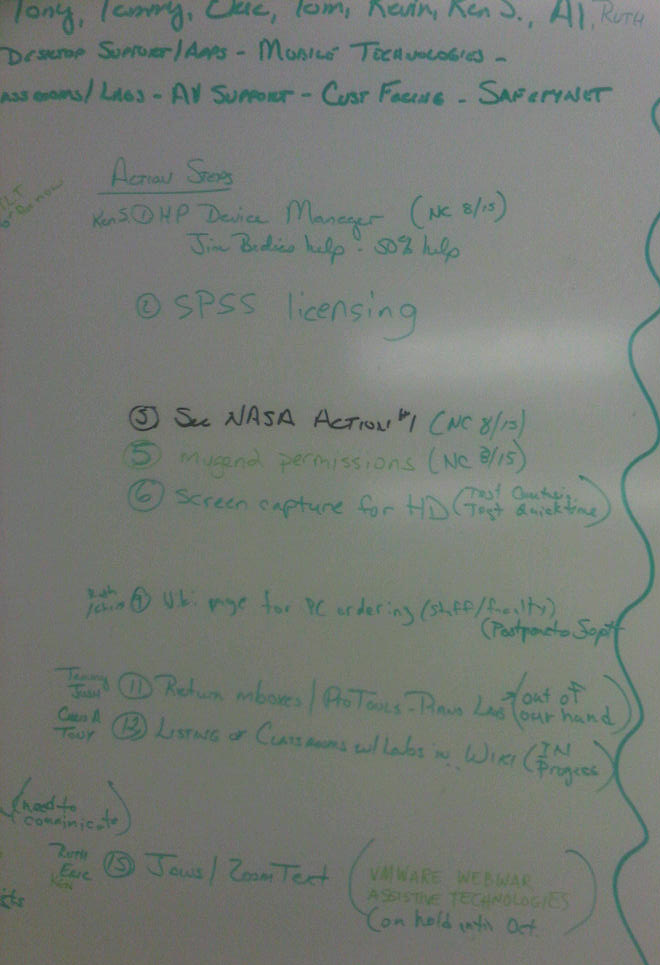 Tony, Tammy, Tom, Kevin, Ken S., Al, RUTH
DESKTOP SUPPORT/APPS - MOBILE TECHNOLOGIES -
ASSROOMS/LABS - AV SUPPORT - CUST FACING - SAFETYNET
ACTION STEPS
Ken S. ① HP Device Manager (NC 8/15)
Jim help - 50% help
② SPSS licensing
③ See NASA ACTION #1 (NC 8/15)
⑤ mugend permissions (NC 8/15)
⑥ Screen capture for HD (Test
Test Quicktime)
Ruth
/Chris ⑨ Wiki page for PC ordering (staff/faculty)
(Postpone to Sept
Tammy
Josh ⑪ Return mboxes / PROTOOLS - PIANO LAB (out of
our hand)
CHRIS A
TONY ⑬ LISTING OF CLASSROOMS w/ Labs in WIKI (IN
Progress)
(need to
comminicate)
RUTH
ERIC
KEN ⑮ Jaws / ZoomText
(VMWARE WEBWAR
ASSISTIVE TECHNOLOGIES
(on hold until Oct.)